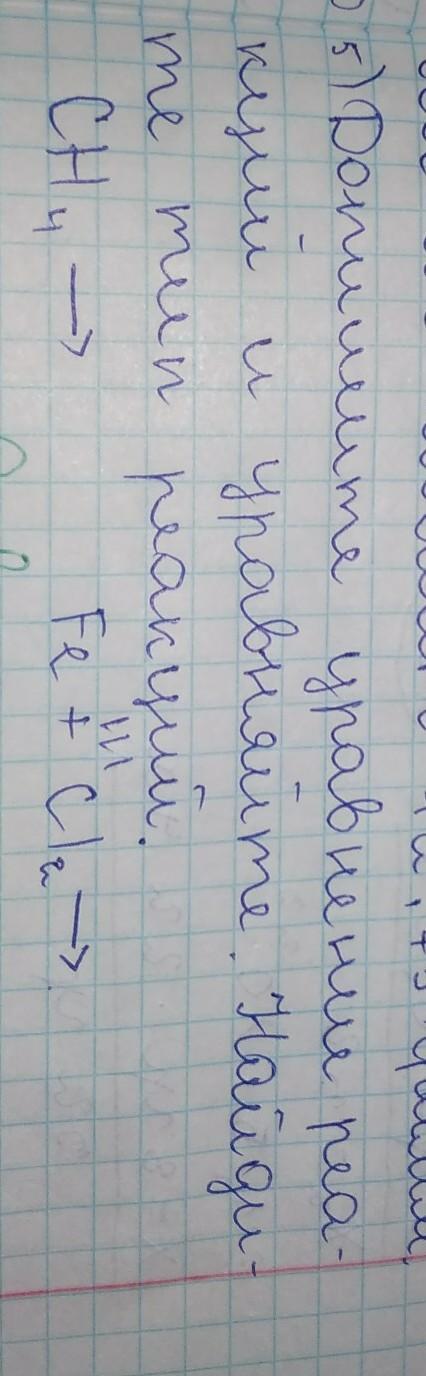 5) Допишите уравнение реа-
кций и уравняйте. Найди-
те тип реакций.
CH₄ → Fe + Cl₂ →
III